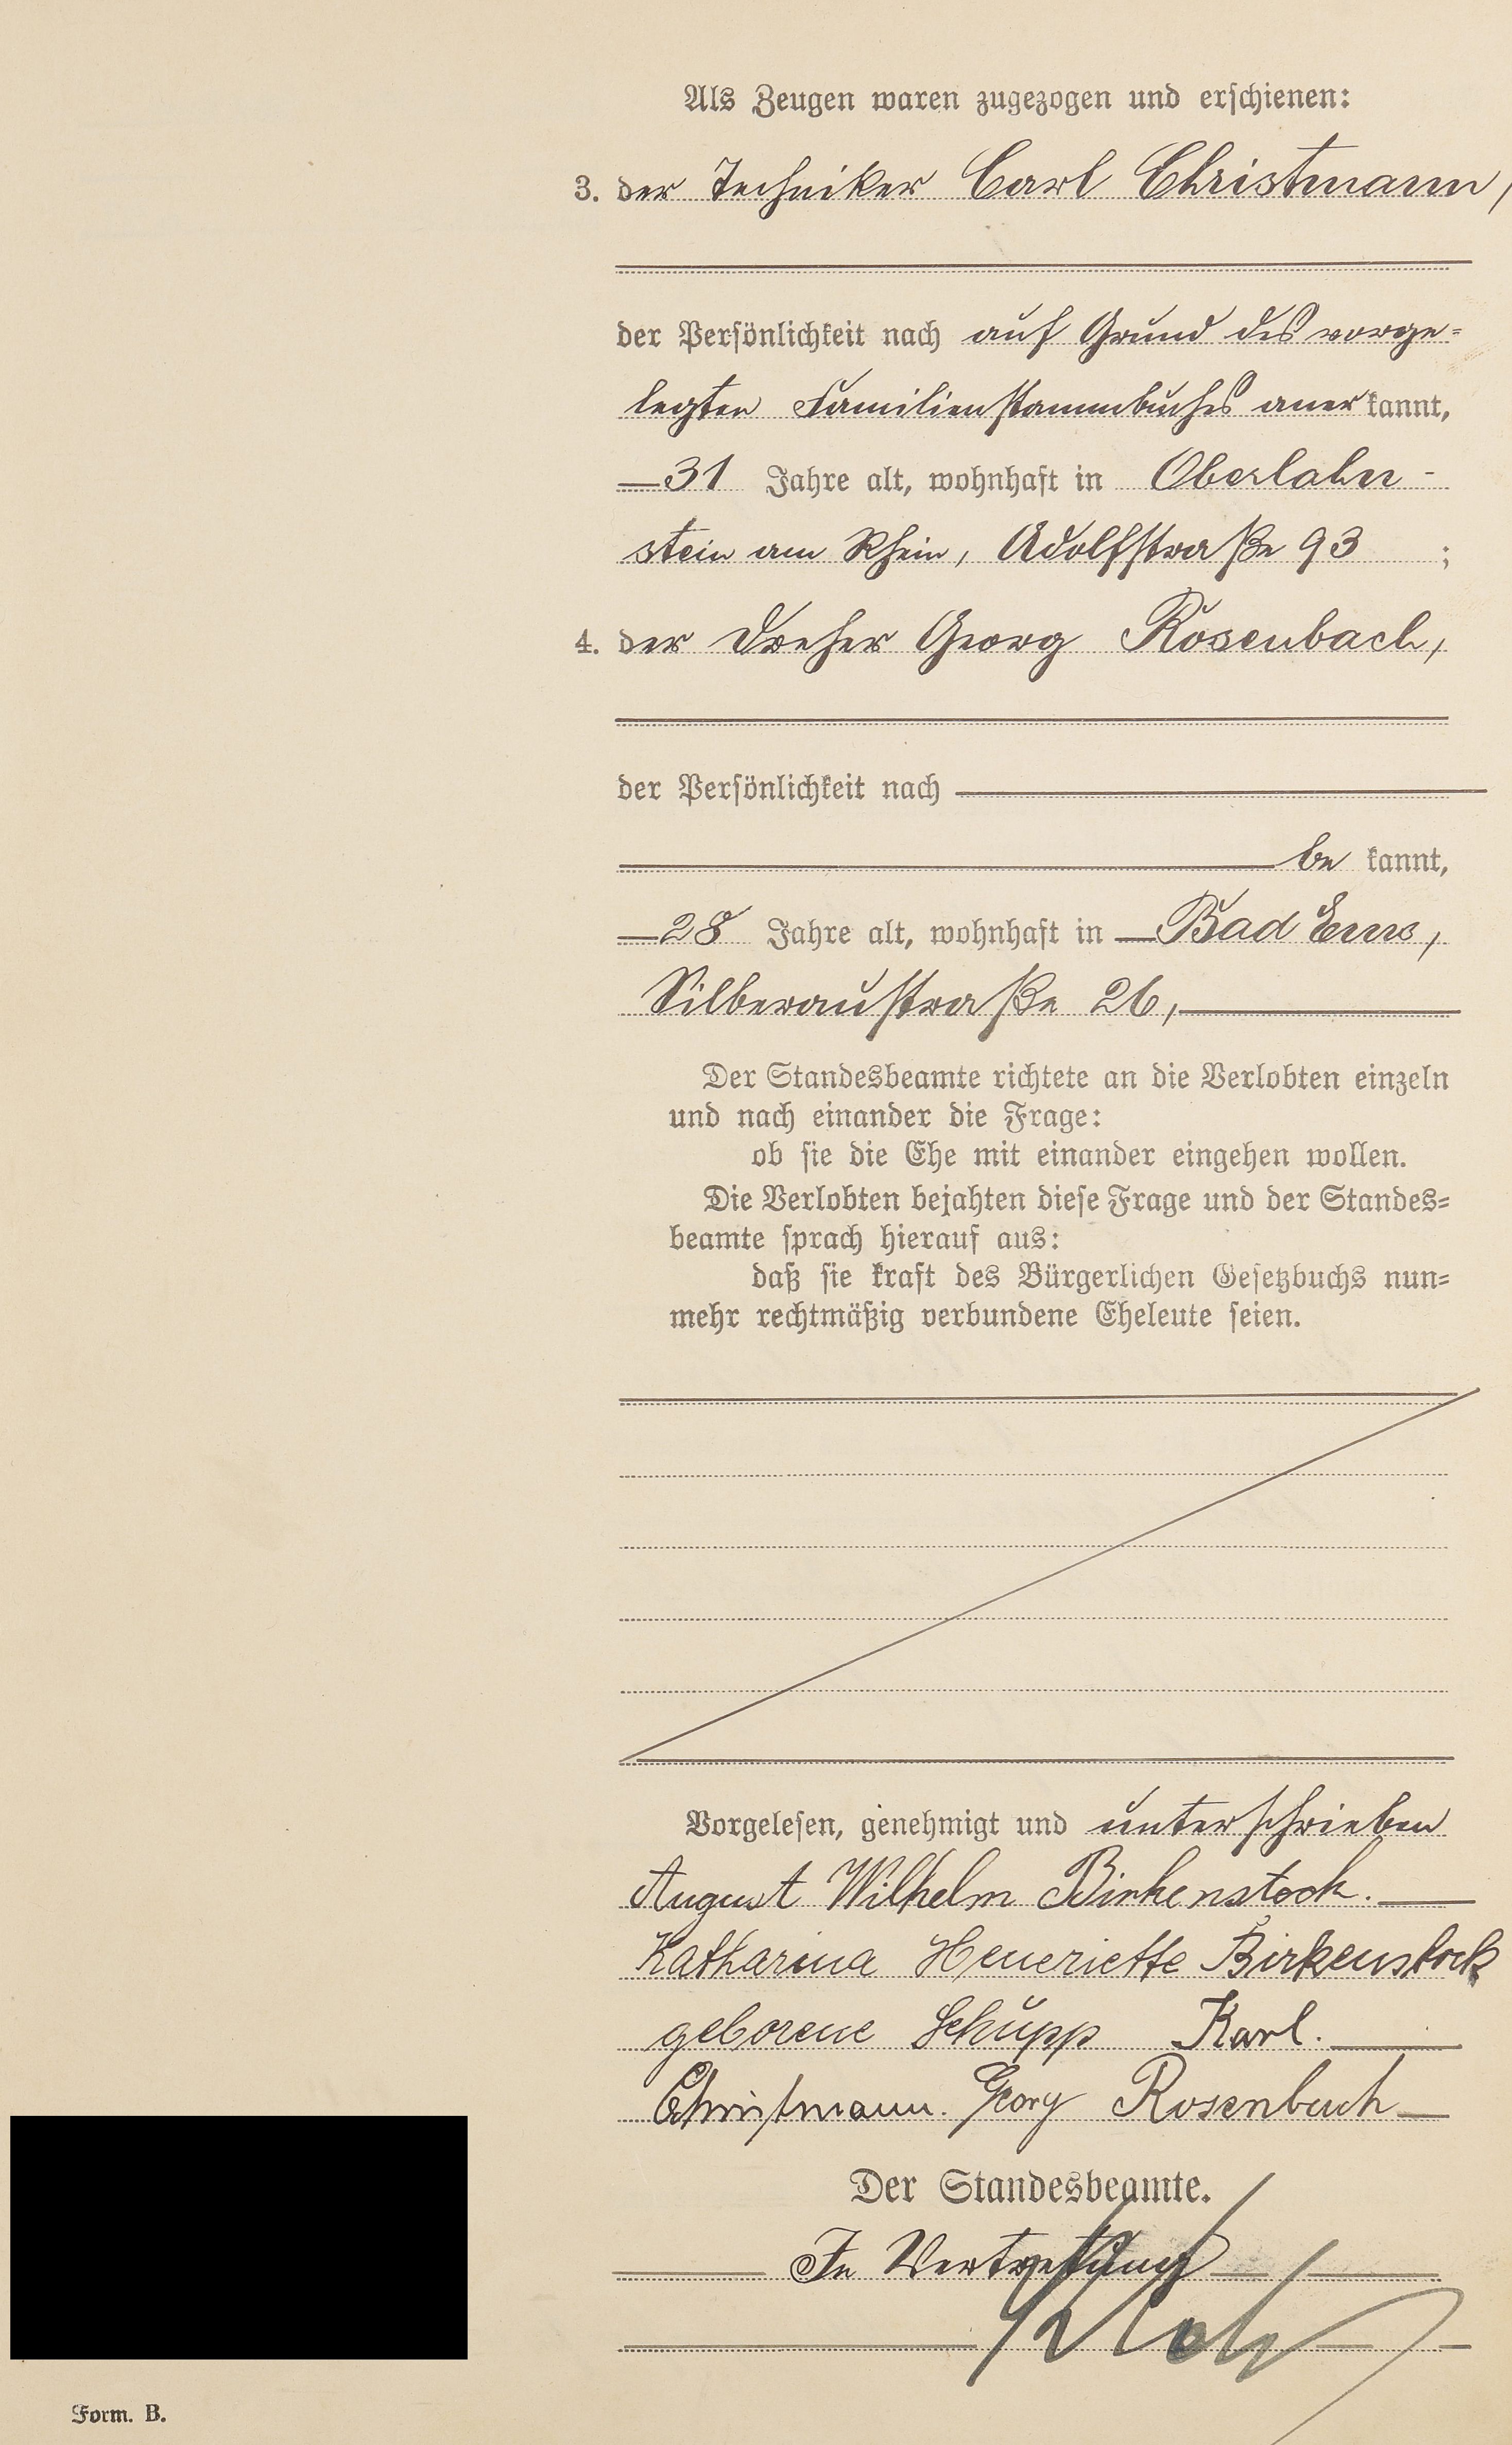 Als Zeugen waren zugezogen und erschienen:
3. der Techniker Carl Christmann,
der Persönlichkeit nach auf Grund des vorge=
legten Familienstammbuches anerkannt,
31 Jahre alt, wohnhaft in Oberlahn-
stein am Rhein, Adolfstraße 93 ;
4. der Dreher Georg Rosenbach,
der Persönlichkeit nach
be kannt,
28 Jahre alt, wohnhaft in Bad Ems,
Silberaustraße 26,
Der Standesbeamte richtete an die Verlobten einzeln
und nach einander die Frage:
ob sie die Ehe mit einander eingehen wollen.
Die Verlobten bejahten diese Frage und der Standes=
beamte sprach hierauf aus:
daß sie kraft des Bürgerlichen Gesetzbuchs nun=
mehr rechtmäßig verbundene Eheleute seien.
Vorgelesen, genehmigt und unterschrieben
August Wilhelm Birkenstock.
Katharina Heneriette Birkenstock
geborene Schupp Karl.
Christmann. Georg Rosenbach
Der Standesbeamte.
In Vertretung
Form. B.